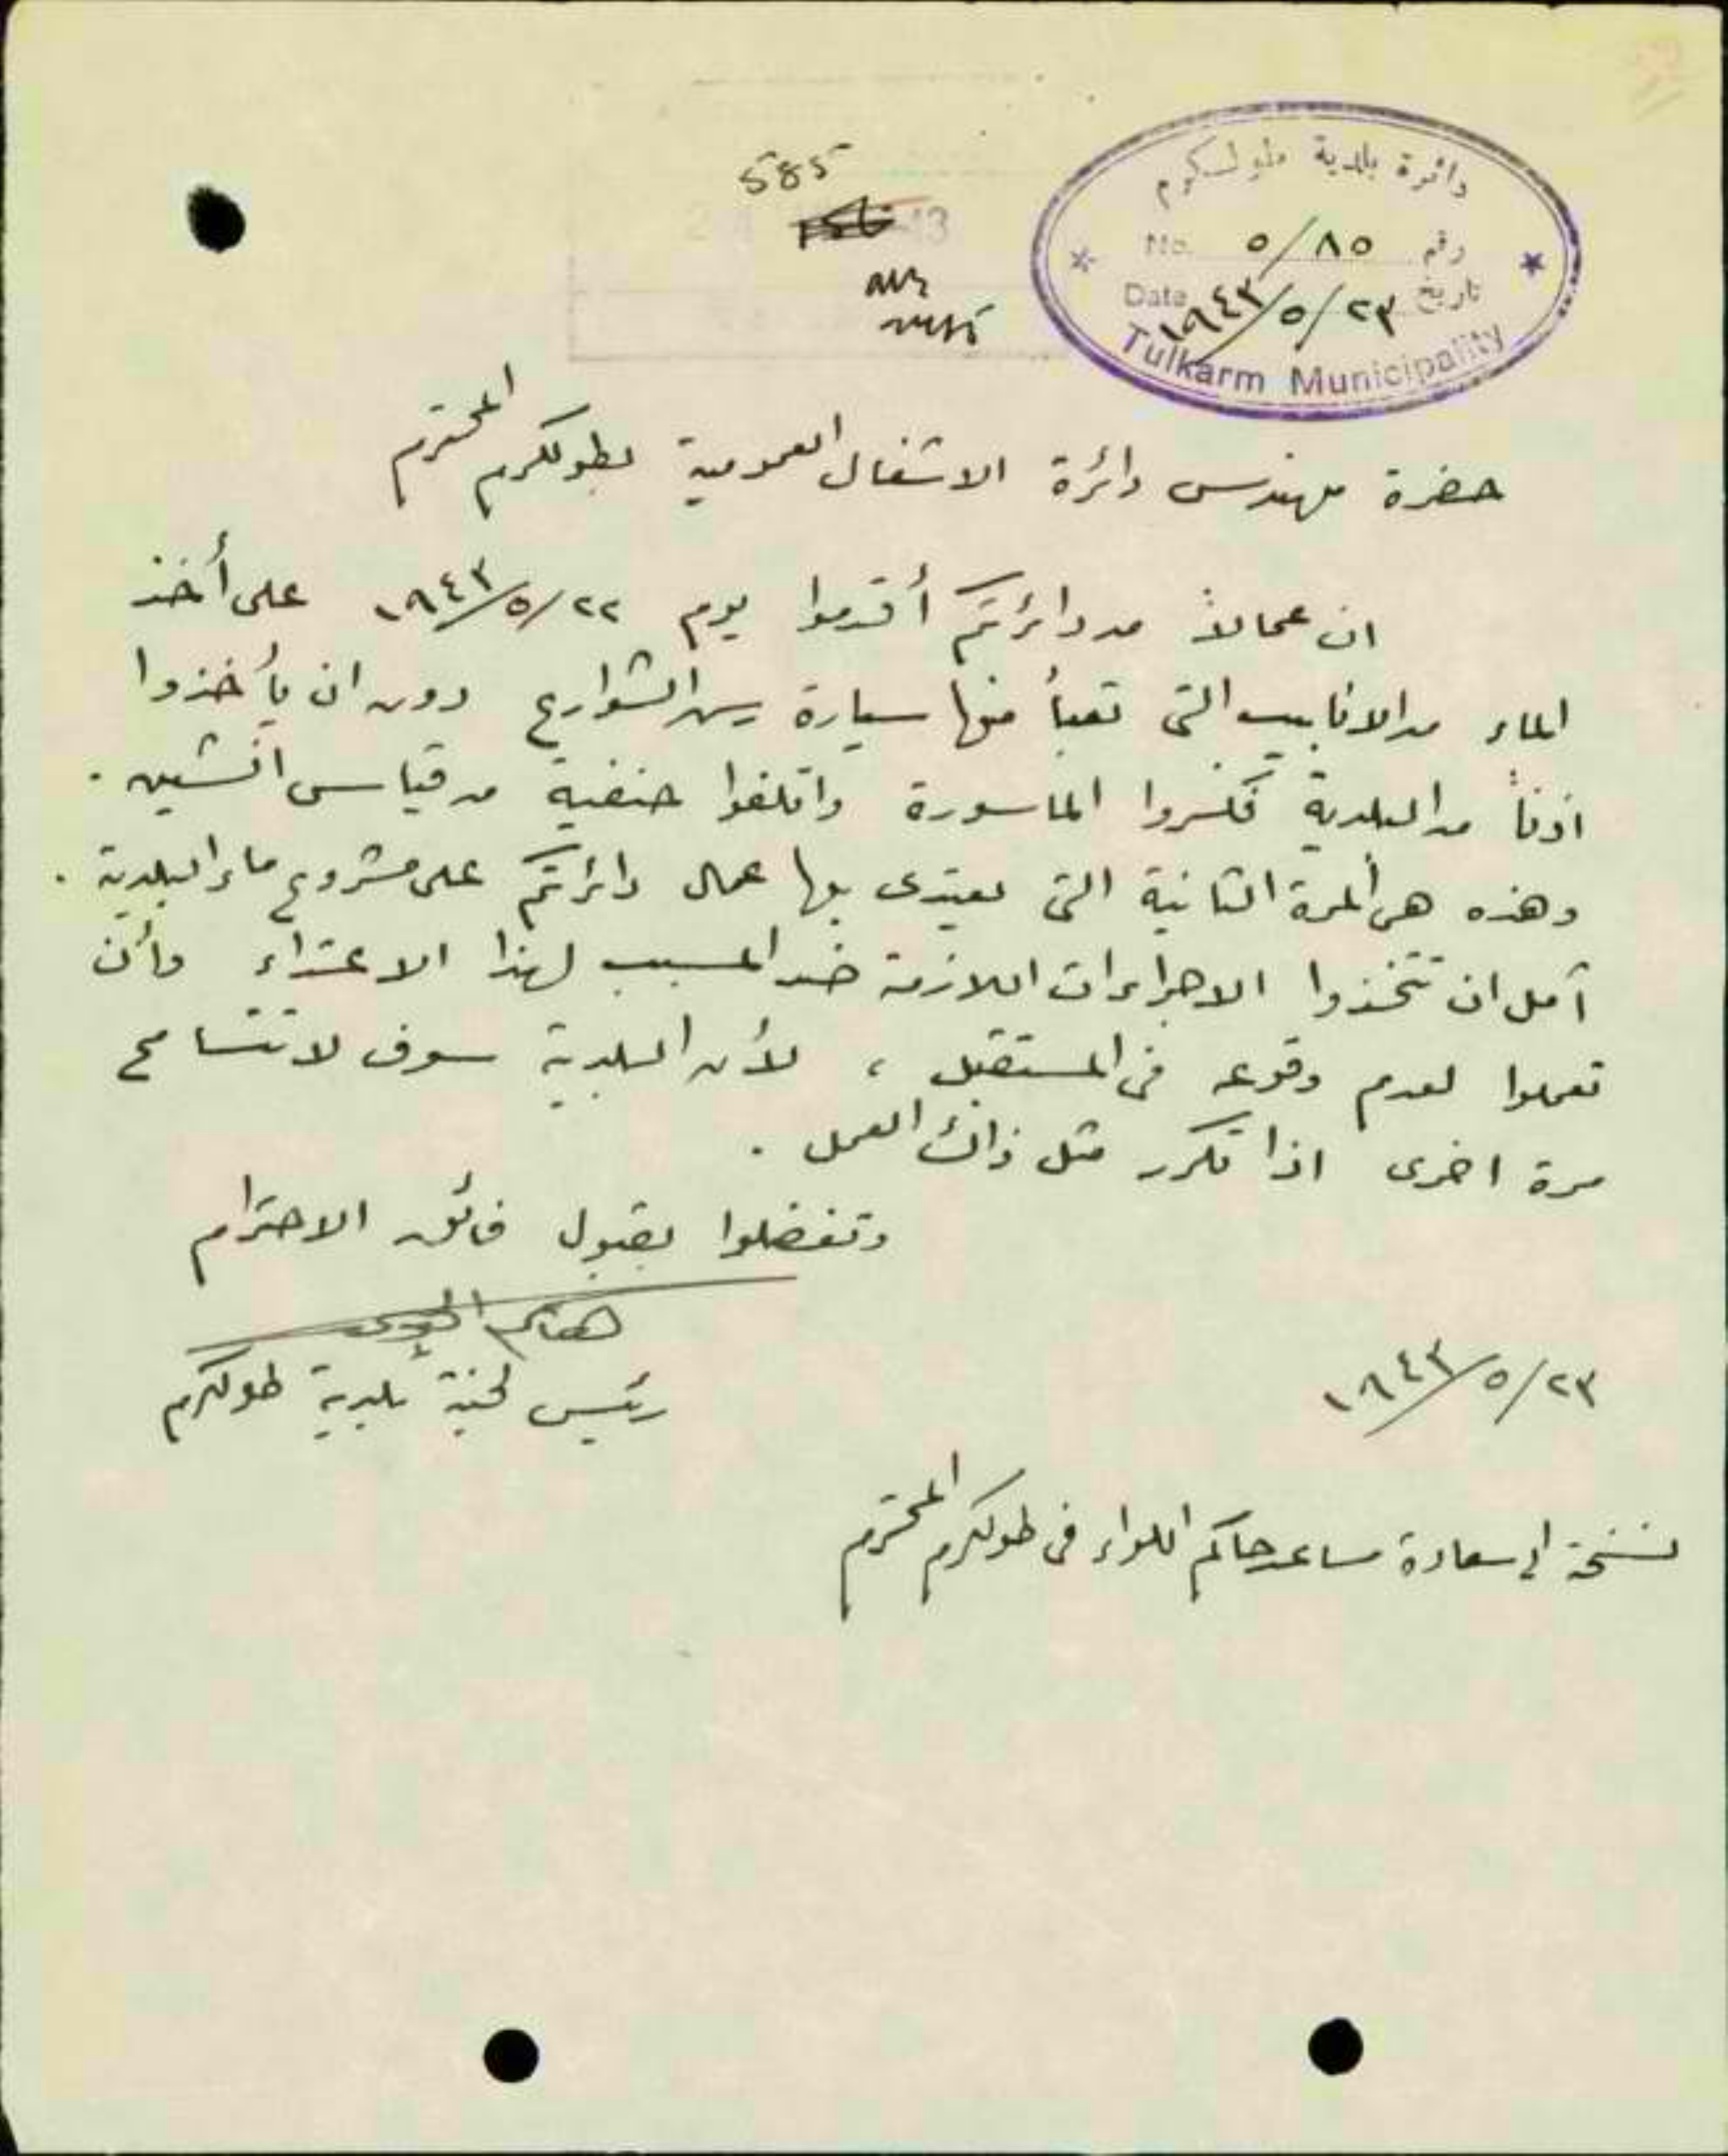 دائرة بلدية طولكرم
No. ٥/٨٥ رقم
Date ٢٣/٥/١٩٤٣ تاريخ
Tulkarm Municipality
585
حضرة مهندس دائرة الاشغال العمومية بطولكرم المحترم
ان عمالاً من دائرتكم أقدموا يوم ٢٢/٥/١٩٤٣ على أخذ
الماء من الانابيب التي تعبأ منها سيارة رش الشوارع دون ان يأخذوا
اذناً من البلدية فكسروا الماسورة واتلفوا حنفية من قياس انشين .
وهذه هي المرة الثانية التي يعتدى بها عمال دائرتكم على مشروع ماء البلدية .
آمل ان تتخذوا الاجراءات اللازمة ضد المسبب لهذا الاعتداء وأن
تعملوا لعدم وقوعه في المستقبل ، لأن البلدية سوف لا تتسامح
مرة اخرى اذا تكرر مثل ذلك العمل .
وتفضلوا بقبول فائق الاحترام
رئيس لجنة بلدية طولكرم
٢٣/٥/١٩٤٣
نسخة الى سعادة مساعد حاكم اللواء في طولكرم المحترم